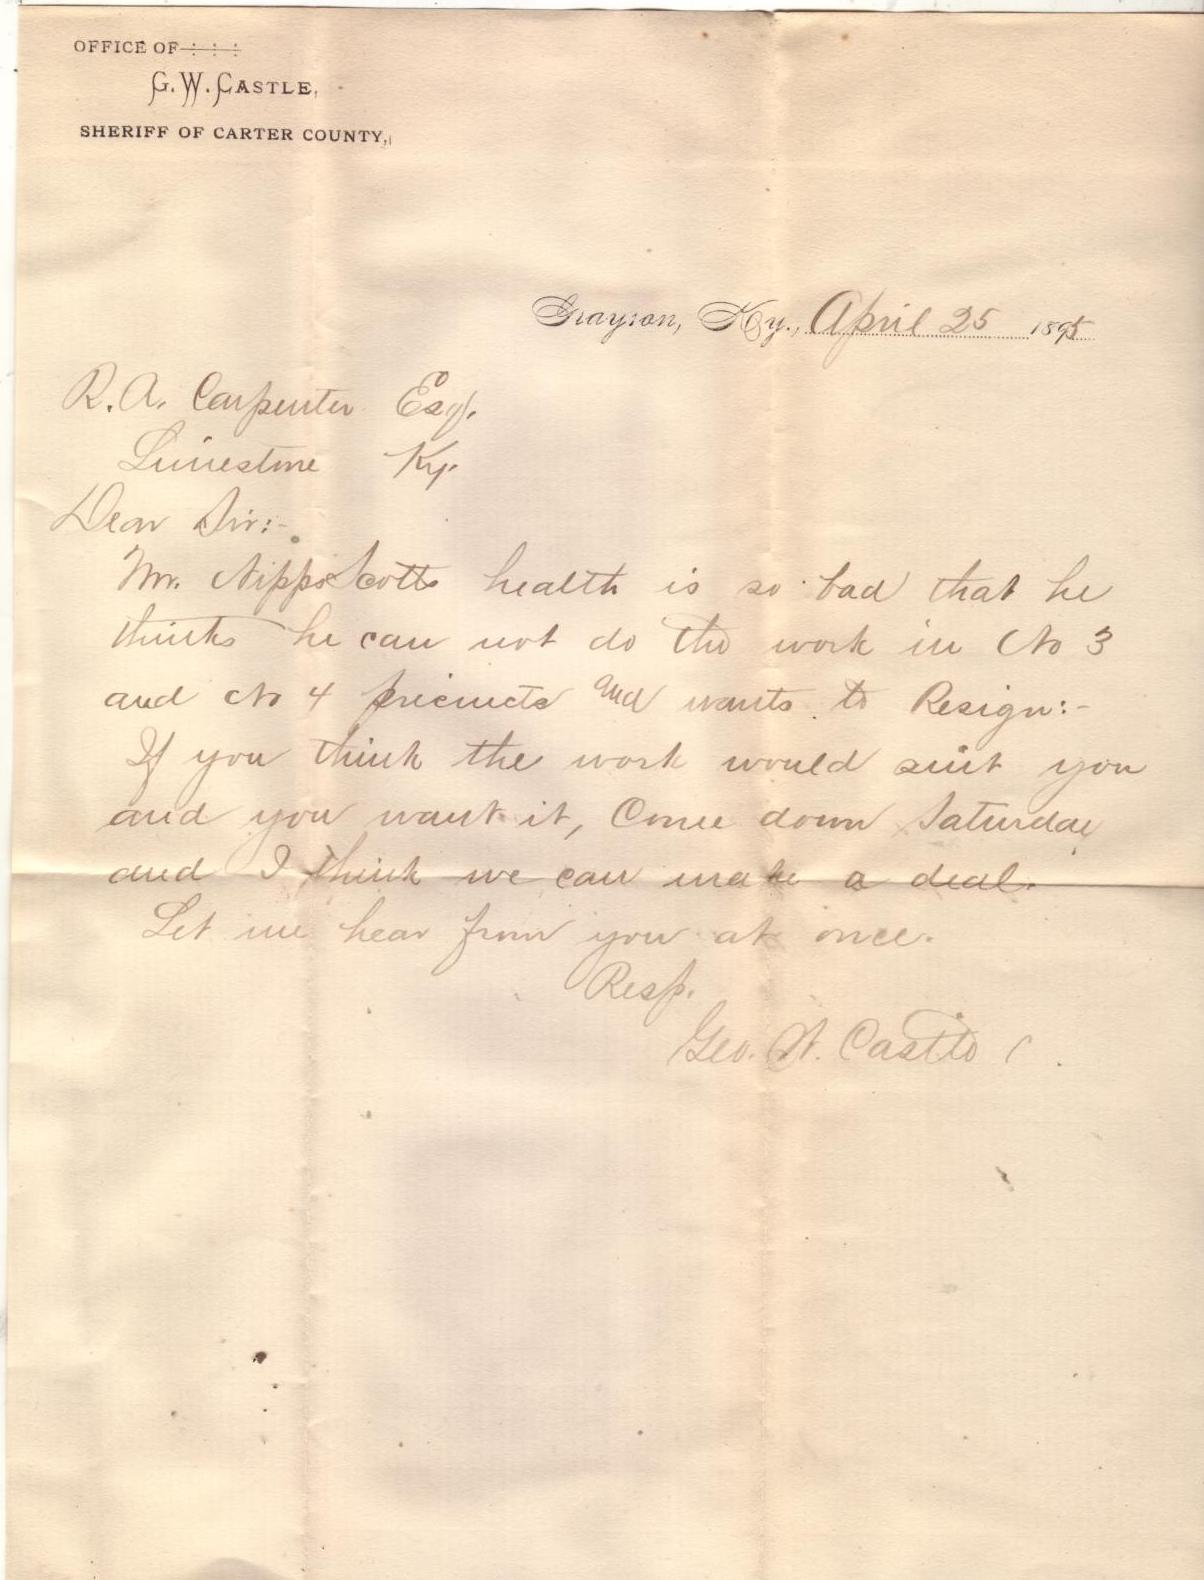 OFFICE OF
G. W. CASTLE,
SHERIFF OF CARTER COUNTY,
Grayson, Ky., April 25 1895
R. A. Carpenter Esq.
Limestone Ky.
Dear Sir:-
Mr. health is so bad that he
thinks he can not do the work in No 3
and No 4 precincts and wants to Resign:-
If you think the work would suit you
and you want it, Come down Saturday
and I think we can make a deal.
Let me hear from you at once.
Resp.
Geo. W. Castle